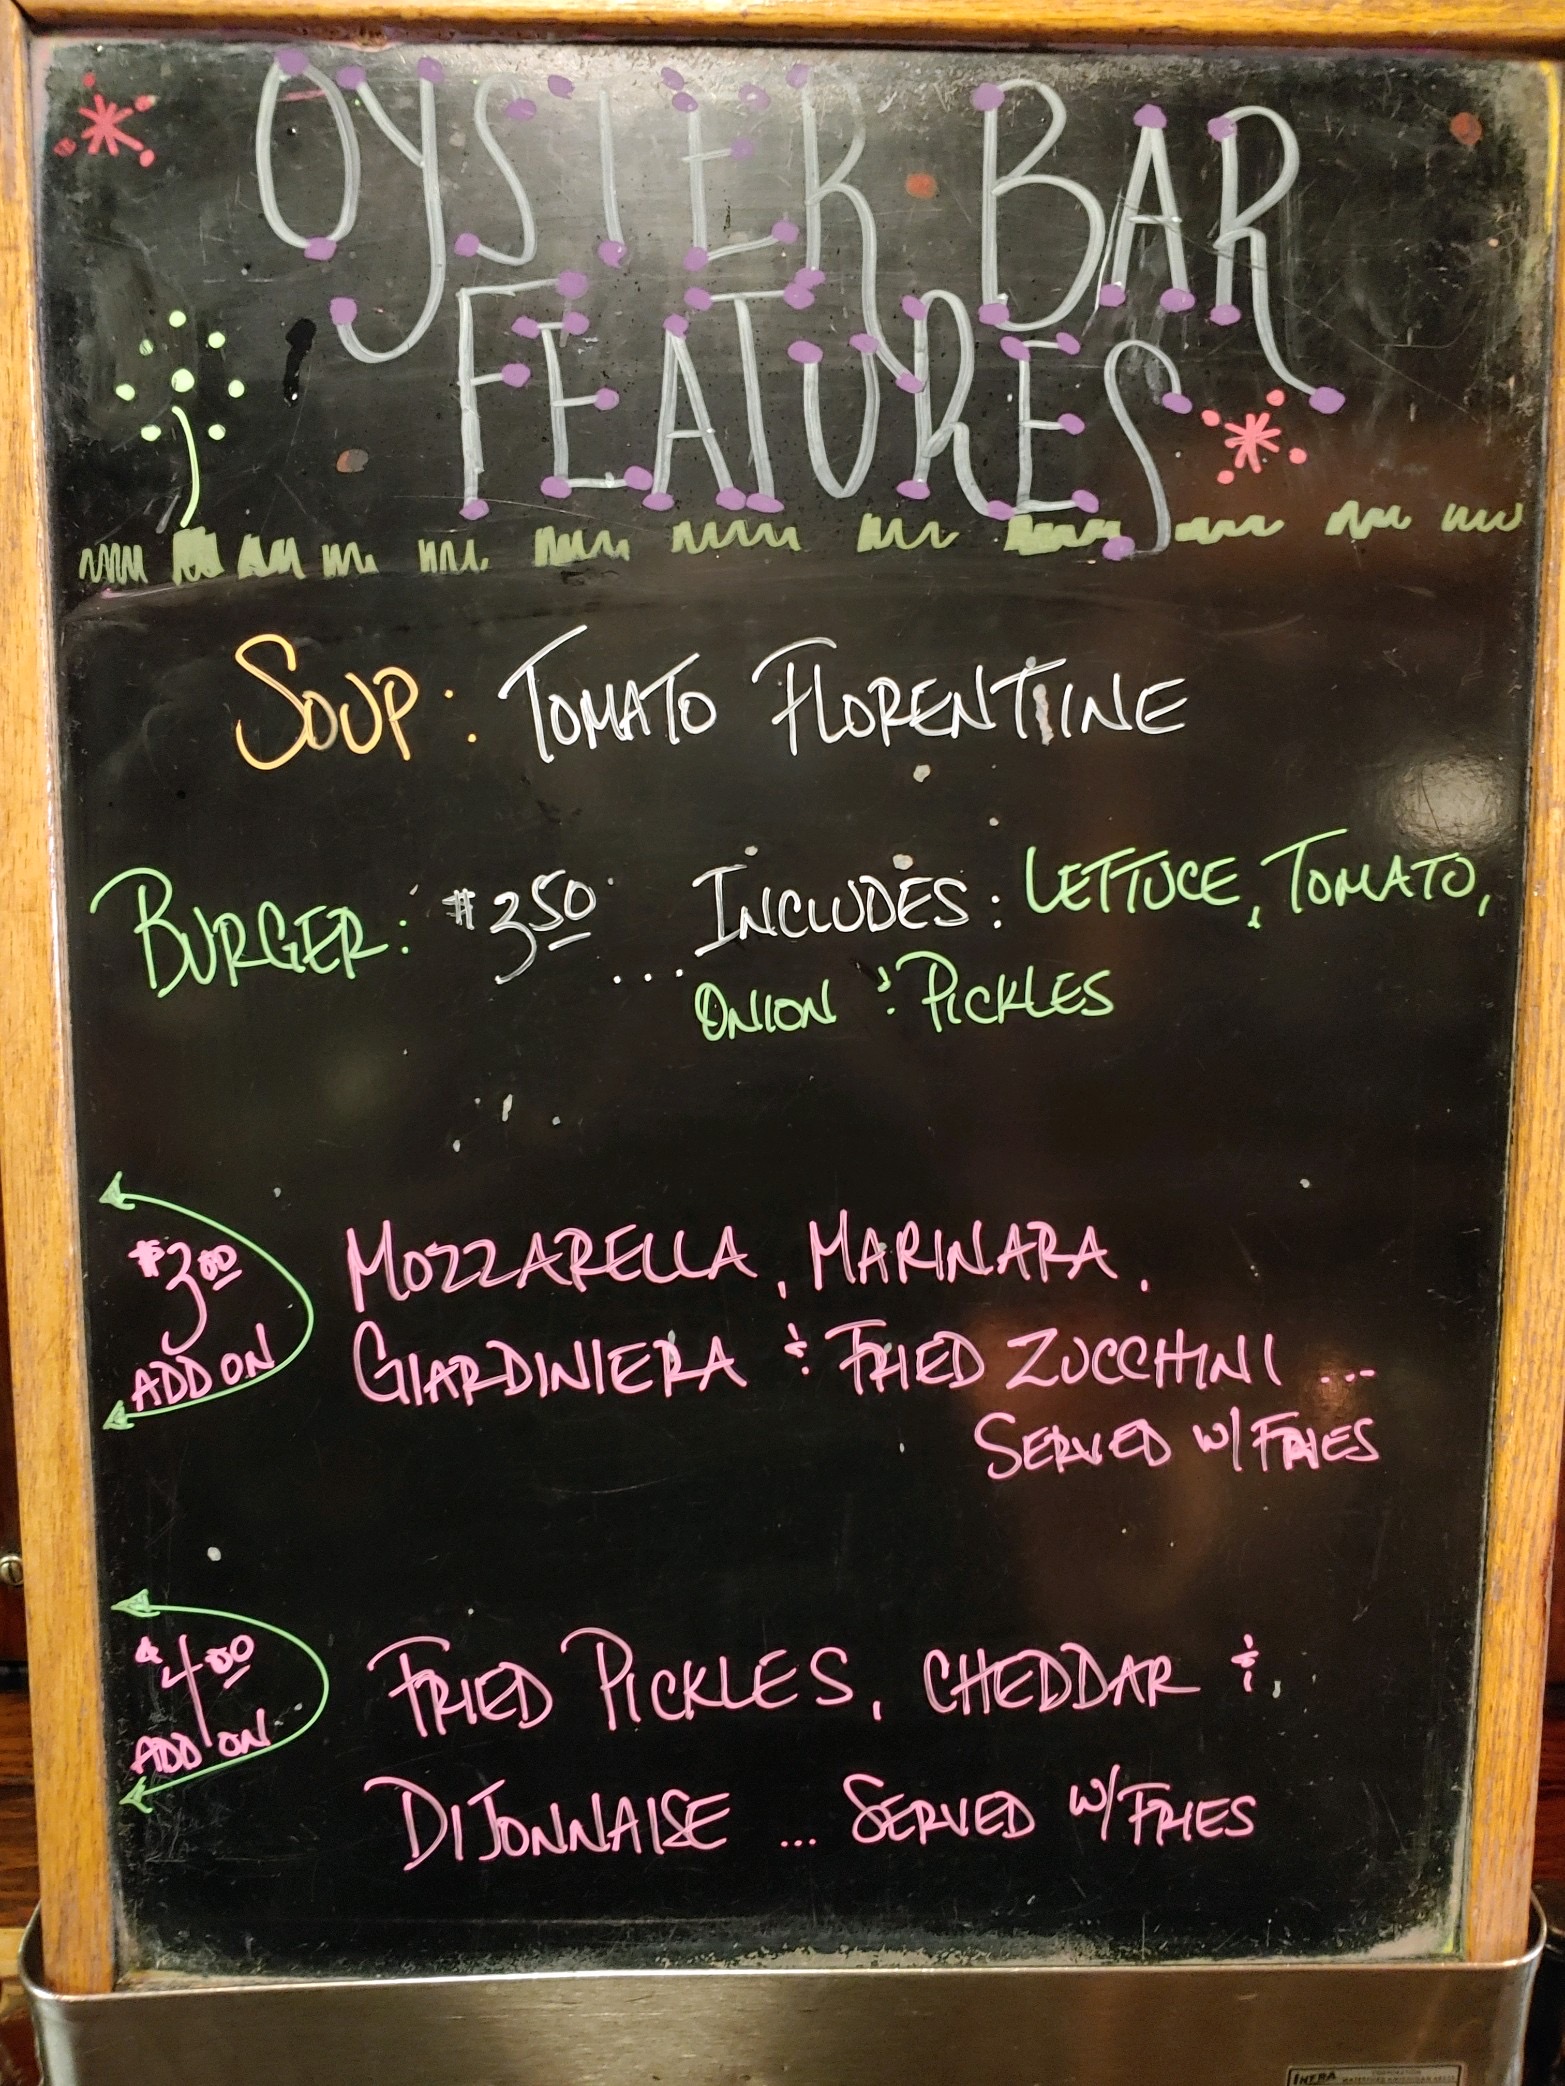 OYSTER BAR
FEATURES
SOUP: TOMATO FLORENTIINE
BURGER: $3.50 ... INCLUDES: LETTUCE, TOMATO,
ONION & PICKLES
$3.00
ADD ON
MOZZARELLA, MARINARA,
GIARDINIERA & FRIED ZUCCHINI ...
SERVED W/ FRIES
$4.00
ADD ON
FRIED PICKLES, CHEDDAR &
DIJONNAISE ... SERVED W/ FRIES
INFRA
CORPORATION